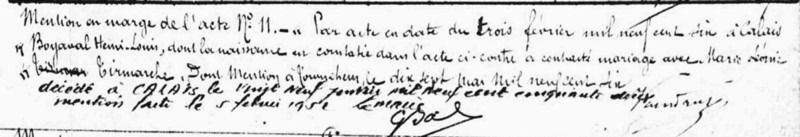 Mention en marge de l'acte N° 11. — " Par acte en date du trois février mil neuf cent six à Calais
" Boyaval Henri-Louis, dont la naissance en constatée dans l'acte ci-contre a contracté mariage avec Marie Léonie
" Tirmarche, Dont Mention à le dix sept Mai Mil neuf cent six
décédé à CALAIS le vingt neuf janvier mil neuf cent cinquante deux
mention faite le 5 février 1952 Le maire